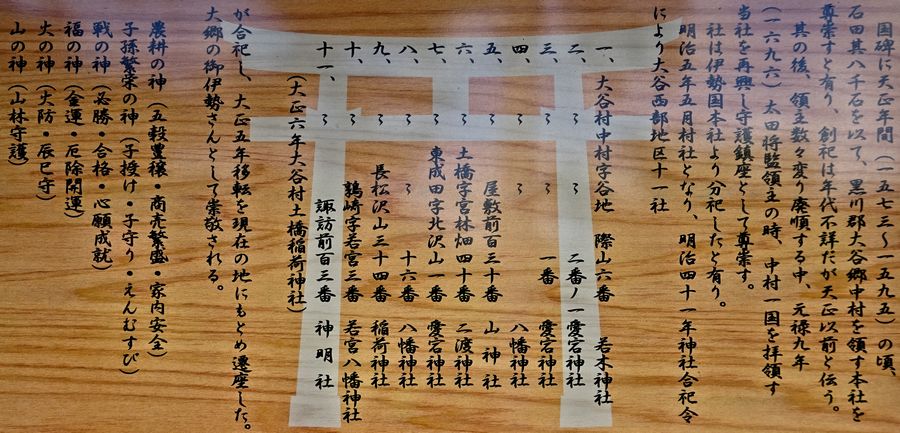 国碑に天正年間（一五七三～一五九五）の頃、
石田其八千石を以て、黒川郡大谷郷中村を領す本社を
尊崇すと有り、創祀は年代不詳だが天正以前と伝う。
其の後、領主数々変り廃頽する中、元禄九年
（一六九六）太田将監領主の時、中村一国を拝領す
当社を再興し守護鎮座として尊崇す。
社は伊勢国本社より分祀したと有り。
明治五年五月村社となり、明治四十一年神社合祀令
により大谷西部地区十一社
一、大谷村中村字谷地　際山六番　若木神社
二、〃　〃　二番ノ一　愛宕神社
三、〃　〃　一番　愛宕神社
四、〃　〃　八幡神社
五、〃　屋敷前百三十番　山神社
六、〃　土橋字宮林畑四十番　二渡神社
七、〃　東成田字北沢山一番　愛宕神社
八、〃　〃　十六番　八幡神社
九、〃　長松沢山三十四番　稲荷神社
十、〃　鶉崎字若宮三番　若宮八幡神社
十一、〃　諏訪前百三番　神明社
（大正六年大谷村土橋稲荷神社）
が合祀し、大正五年移転を現在の地にもとめ遷座した。
大郷の御伊勢さんとして崇敬される。
農耕の神（五穀豊穣・商売繁盛・家内安全）
子孫繁栄の神（子授け・子守り・えんむすび）
戦の神（必勝・合格・心願成就）
福の神（金運・厄除開運）
火の神（火防・辰巳守）
山の神（山林守護）